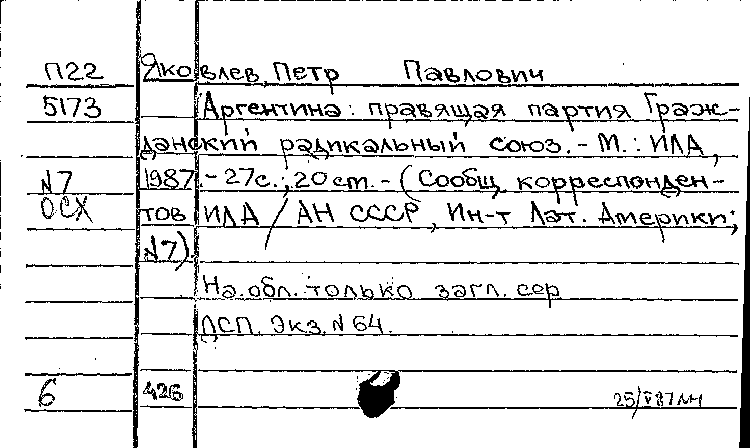 П22 Яковлев, Петр Павлович
5173 Аргентина: правящая партия Граж-
данский радикальный союз. - М.: ИЛА,
N7 1987. - 27с.; 20 ст. - (Сообщ. корреспонден-
ОСХ тов ИЛА / АН СССР, Ин-т Лат. Америки;
N7).
На обл. только загл. сер
ДСП. Экз. N 64.
6 426 25/V87